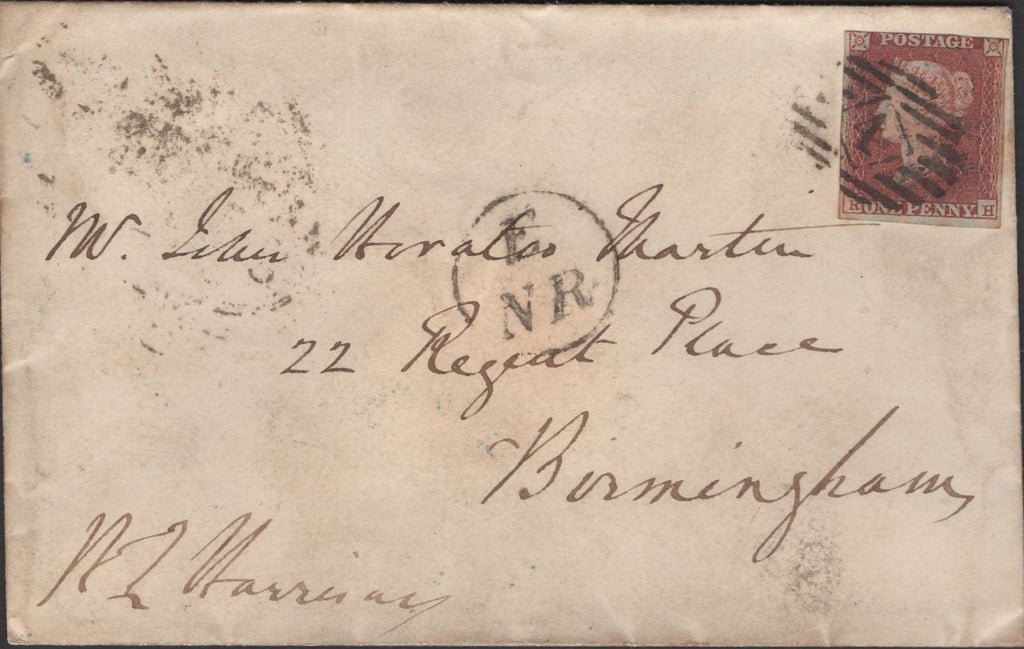 POSTAGE
ONE PENNY H
Mr. John Horatio Martin
E
NR
22 Regent Place
Birmingham